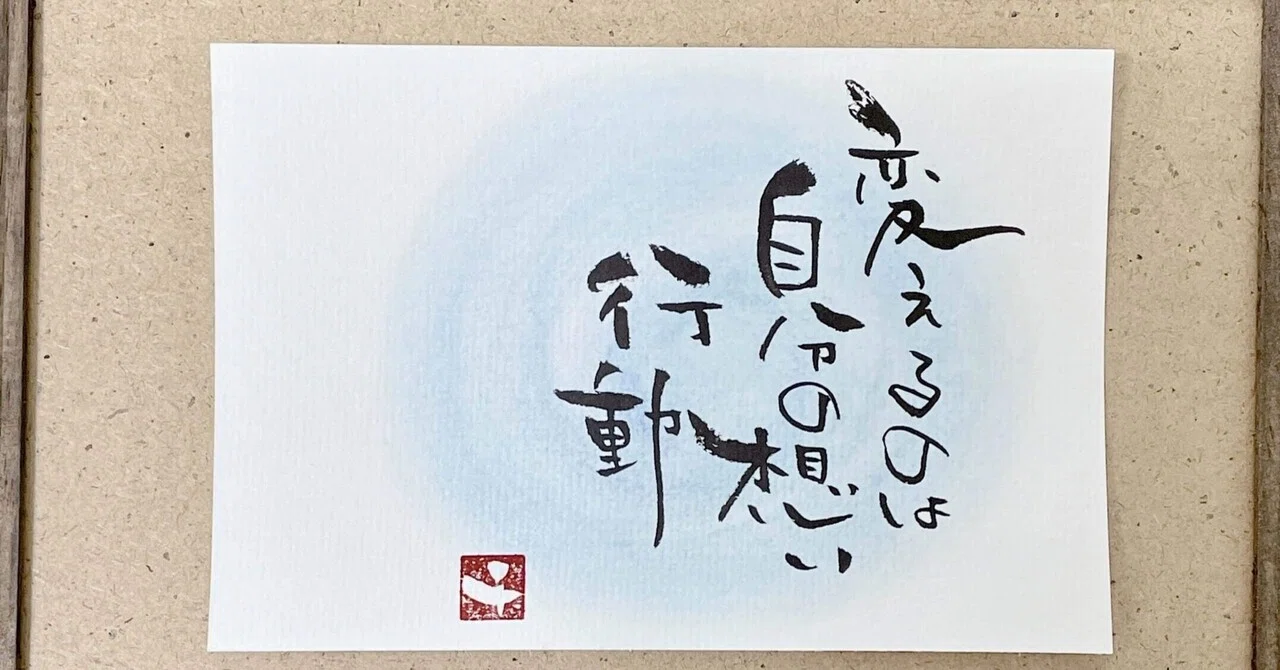 変えるのは
自分の想い
行動